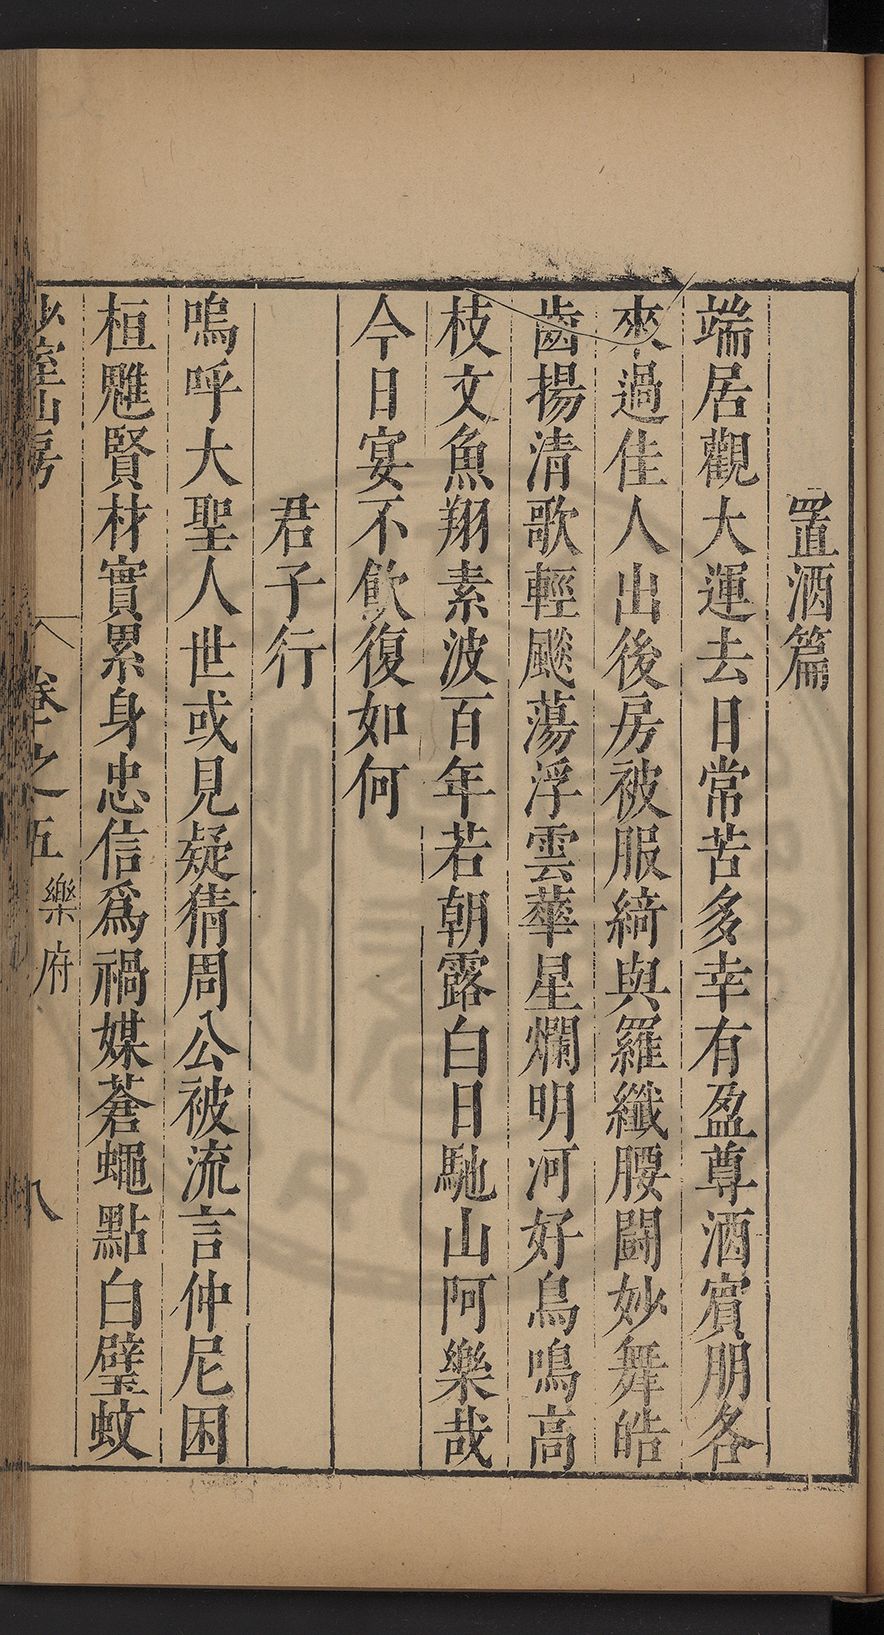 置酒篇
端居觀大運去日常苦多幸有盈尊酒賓朋各
來過佳人出後房被服綺與羅纖腰鬪妙舞皓
齒揚清歌輕颷蕩浮雲華星爛明河好鳥鳴高
枝文魚翔素波百年若朝露白日馳山阿樂哉
今日宴不飲復如何
君子行
嗚呼大聖人世或見疑猜周公被流言仲尼困
桓魋賢材實累身忠信爲禍媒蒼蠅點白璧蚊
少室山房
卷之五
樂府
八